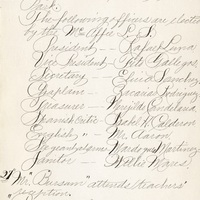 Task.
The following officers are elected
by the Mc Affie L. S.
President — Rafael Luna
Vice President — Polo Gallegos
Secretary — Elvira Sanchez
Chaplain — Zacarias Rodriguez
Treasurer — Virgilda Candelaria
Spanish Critic — Isabel H. Calderon
English " — Mr. Aaron
Sergeant at arms Mardoqueo Martinez
Janitor — Walter
21 Mr. "Bursam" attends teachers'
reception.